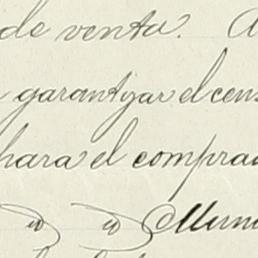 de venta. A
garantizar el cens
hara el comprad
Id Id Muni